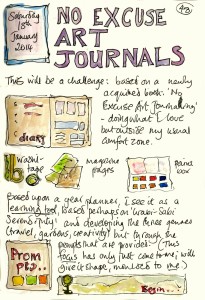 Saturday
18th
January
2014
43
NO EXCUSE
ART
JOURNALS
This will be a challenge: based on a newly
acquired book: 'No
Excuse Art Journaling'
- doing what I love
but outside my usual
comfort zone.
diary
Washi-
tape
magazine
pages
paint
box
Based upon a year planner, I see it as a
learning tool, based perhaps on 'Wabi-Sabi
Serendipity' and developing the three genres
(travel, gardens, creativity) but through the
prompts that are provided. (This
focus has only just come to me; will
give it shape, meanings to me)
From
Begin...